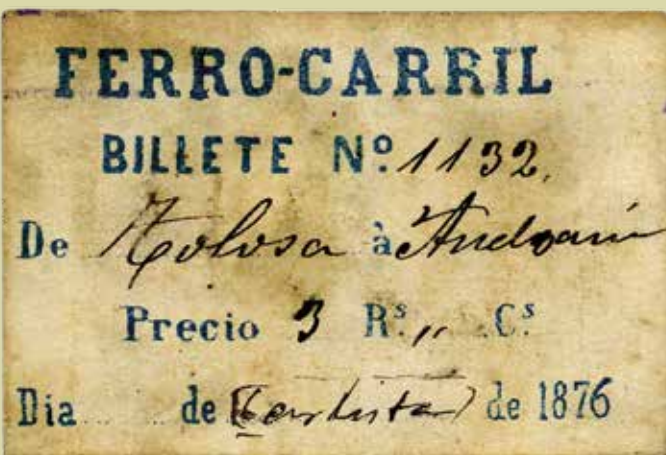 FERRO-CARRIL
BILLETE Nº 1132.
De Tolosa à Andoain
Precio 3 Rˢ. ,, Cˢ.
Dia de (Carlista) de 1876